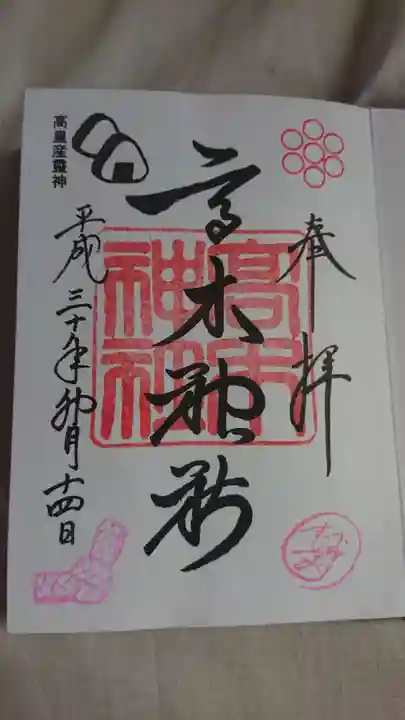 奉拝
高木神社
高木神社
高皇産靈神
平成三十年卯月十四日